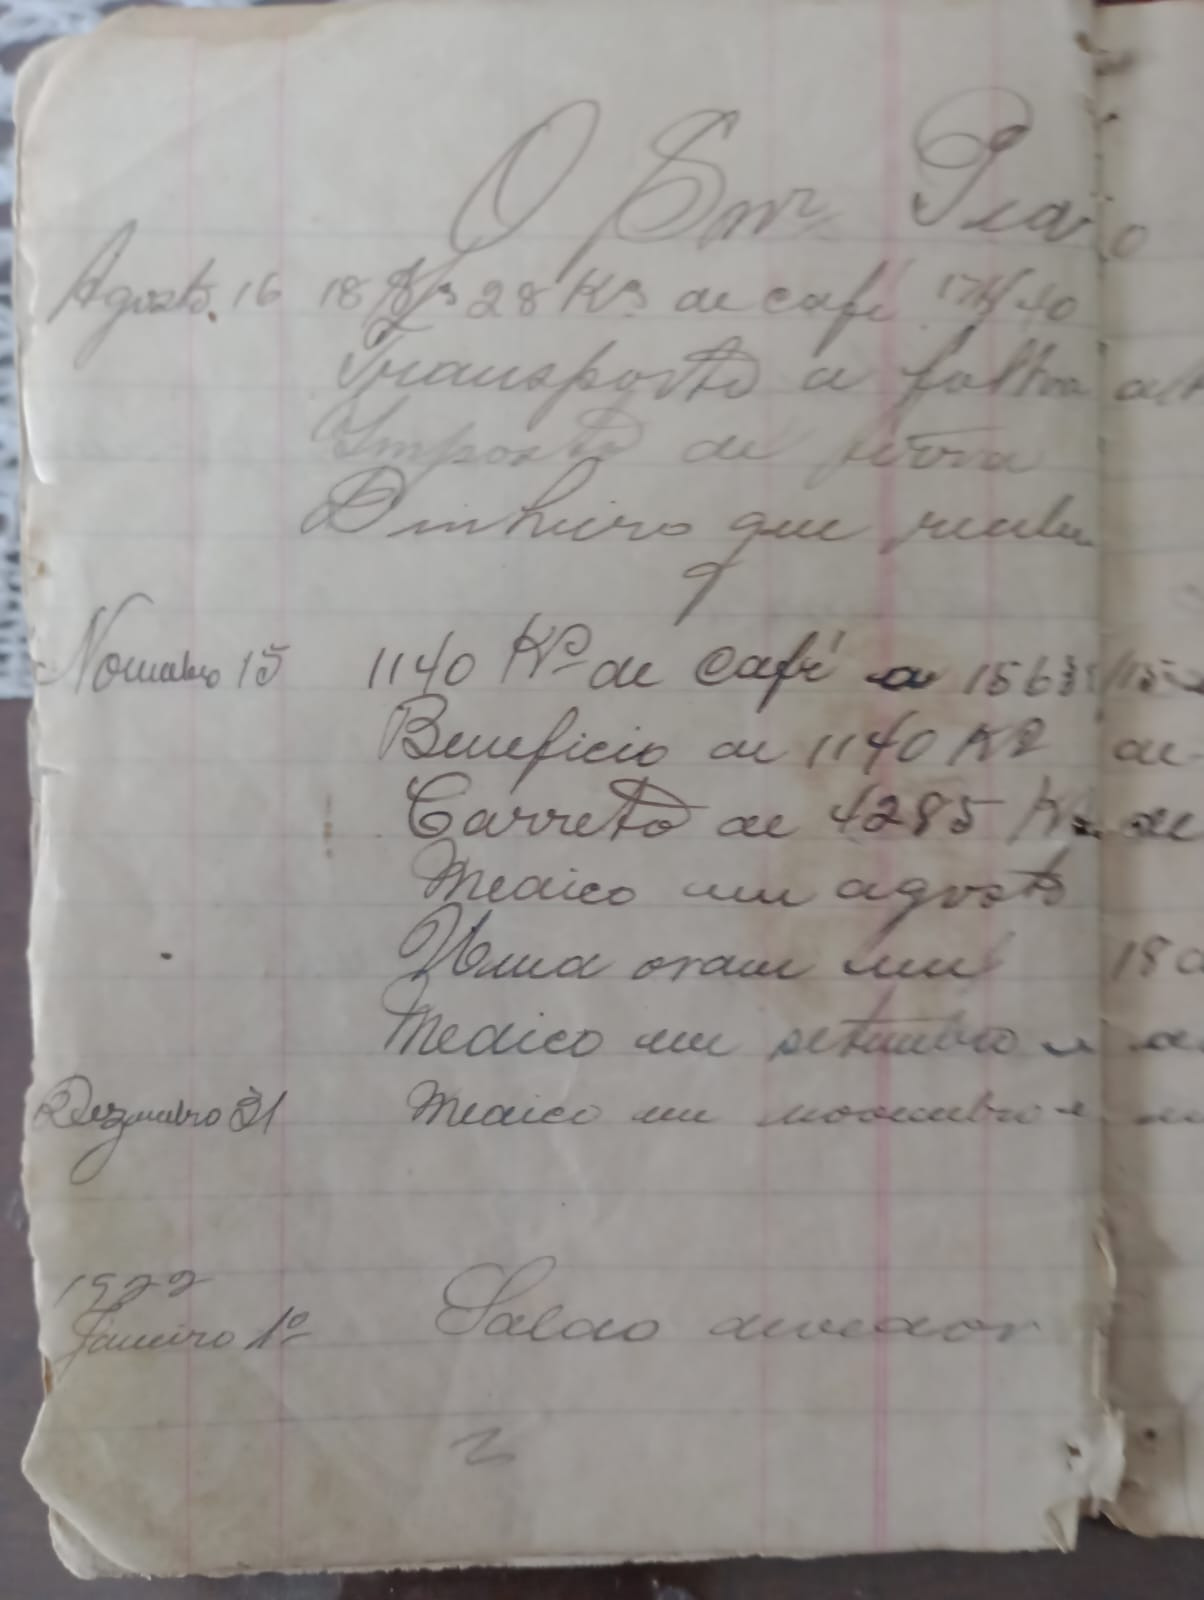 O Snr. Pedro
Agosto 16 18 28 Kos de café
Transporte a folha
Imposto de
Dinheiro que recebeu
Novembro 15 1140 Ko de café a
Beneficio de 1140 Ko de
Carreto de 4285 Ks de
Medico em agosto
Uma em 18
Medico em setembro e
Dezembro 31 Medico em novembro e
1922
Janeiro 1º Saldo devedor
2